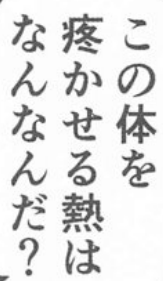 この体を
疼かせる熱は
なんなんだ？